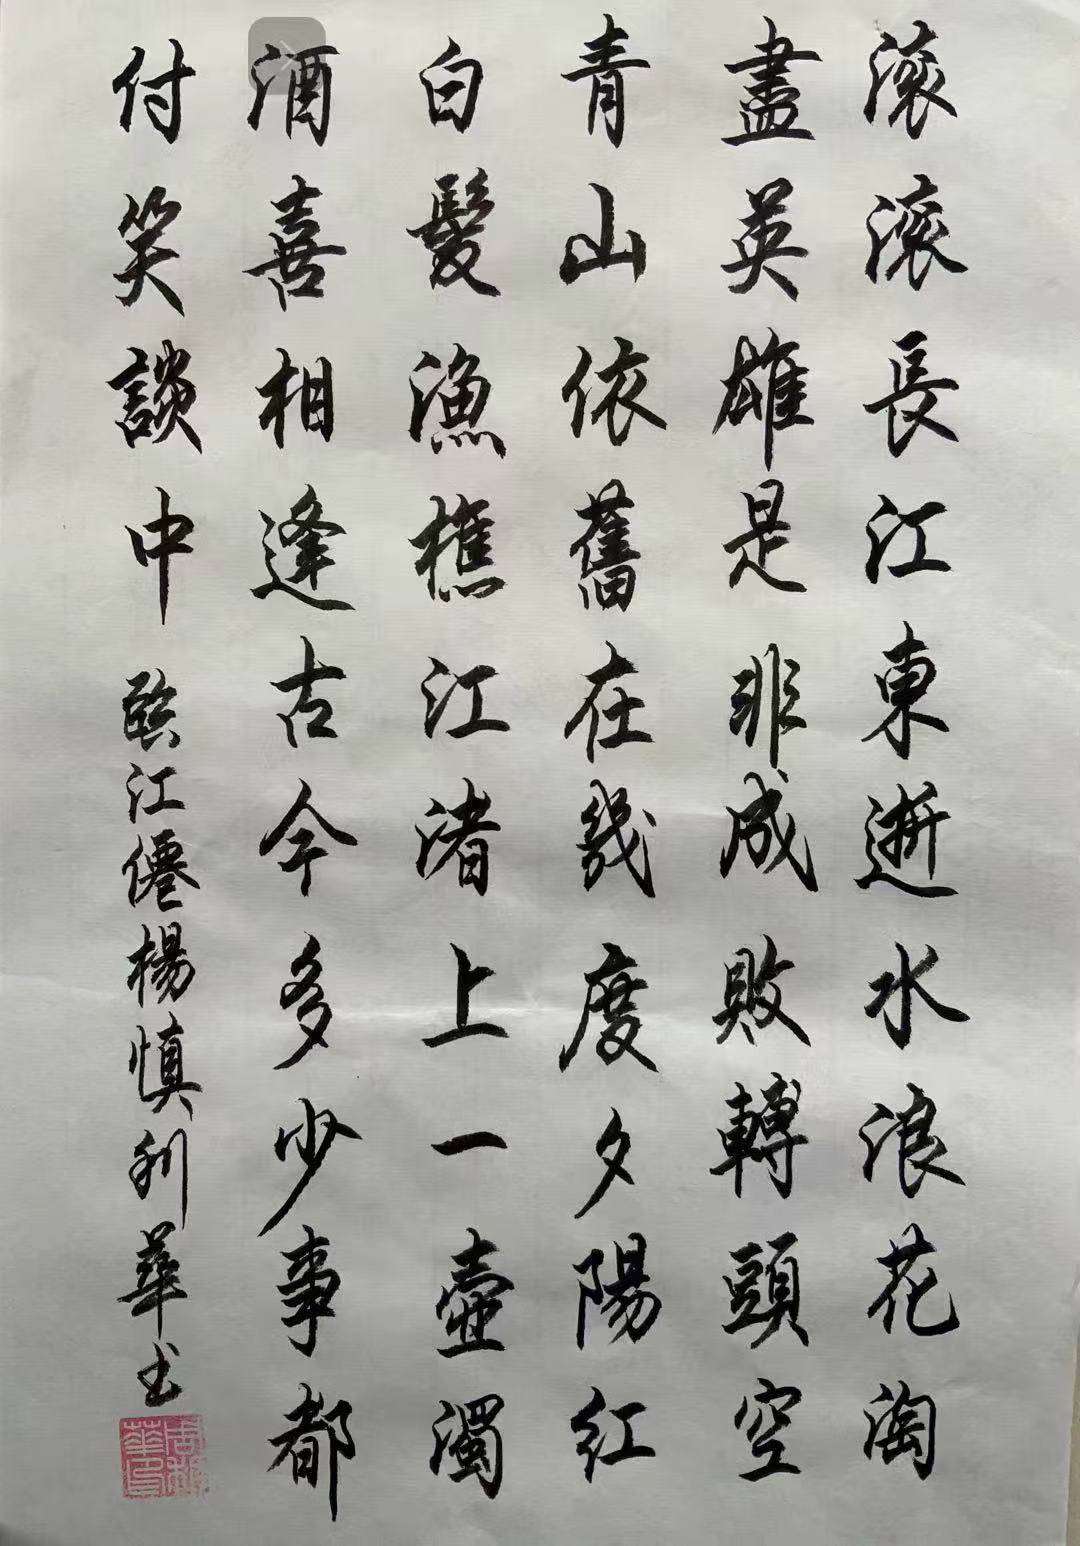 滚滚長江東逝水浪花淘
盡英雄是非成敗轉頭空
青山依舊在幾度夕陽红
白髮漁樵江渚上一壺濁
酒喜相逢古今多少事都
付笑談中 臨江僊楊慎利華书
周利華印